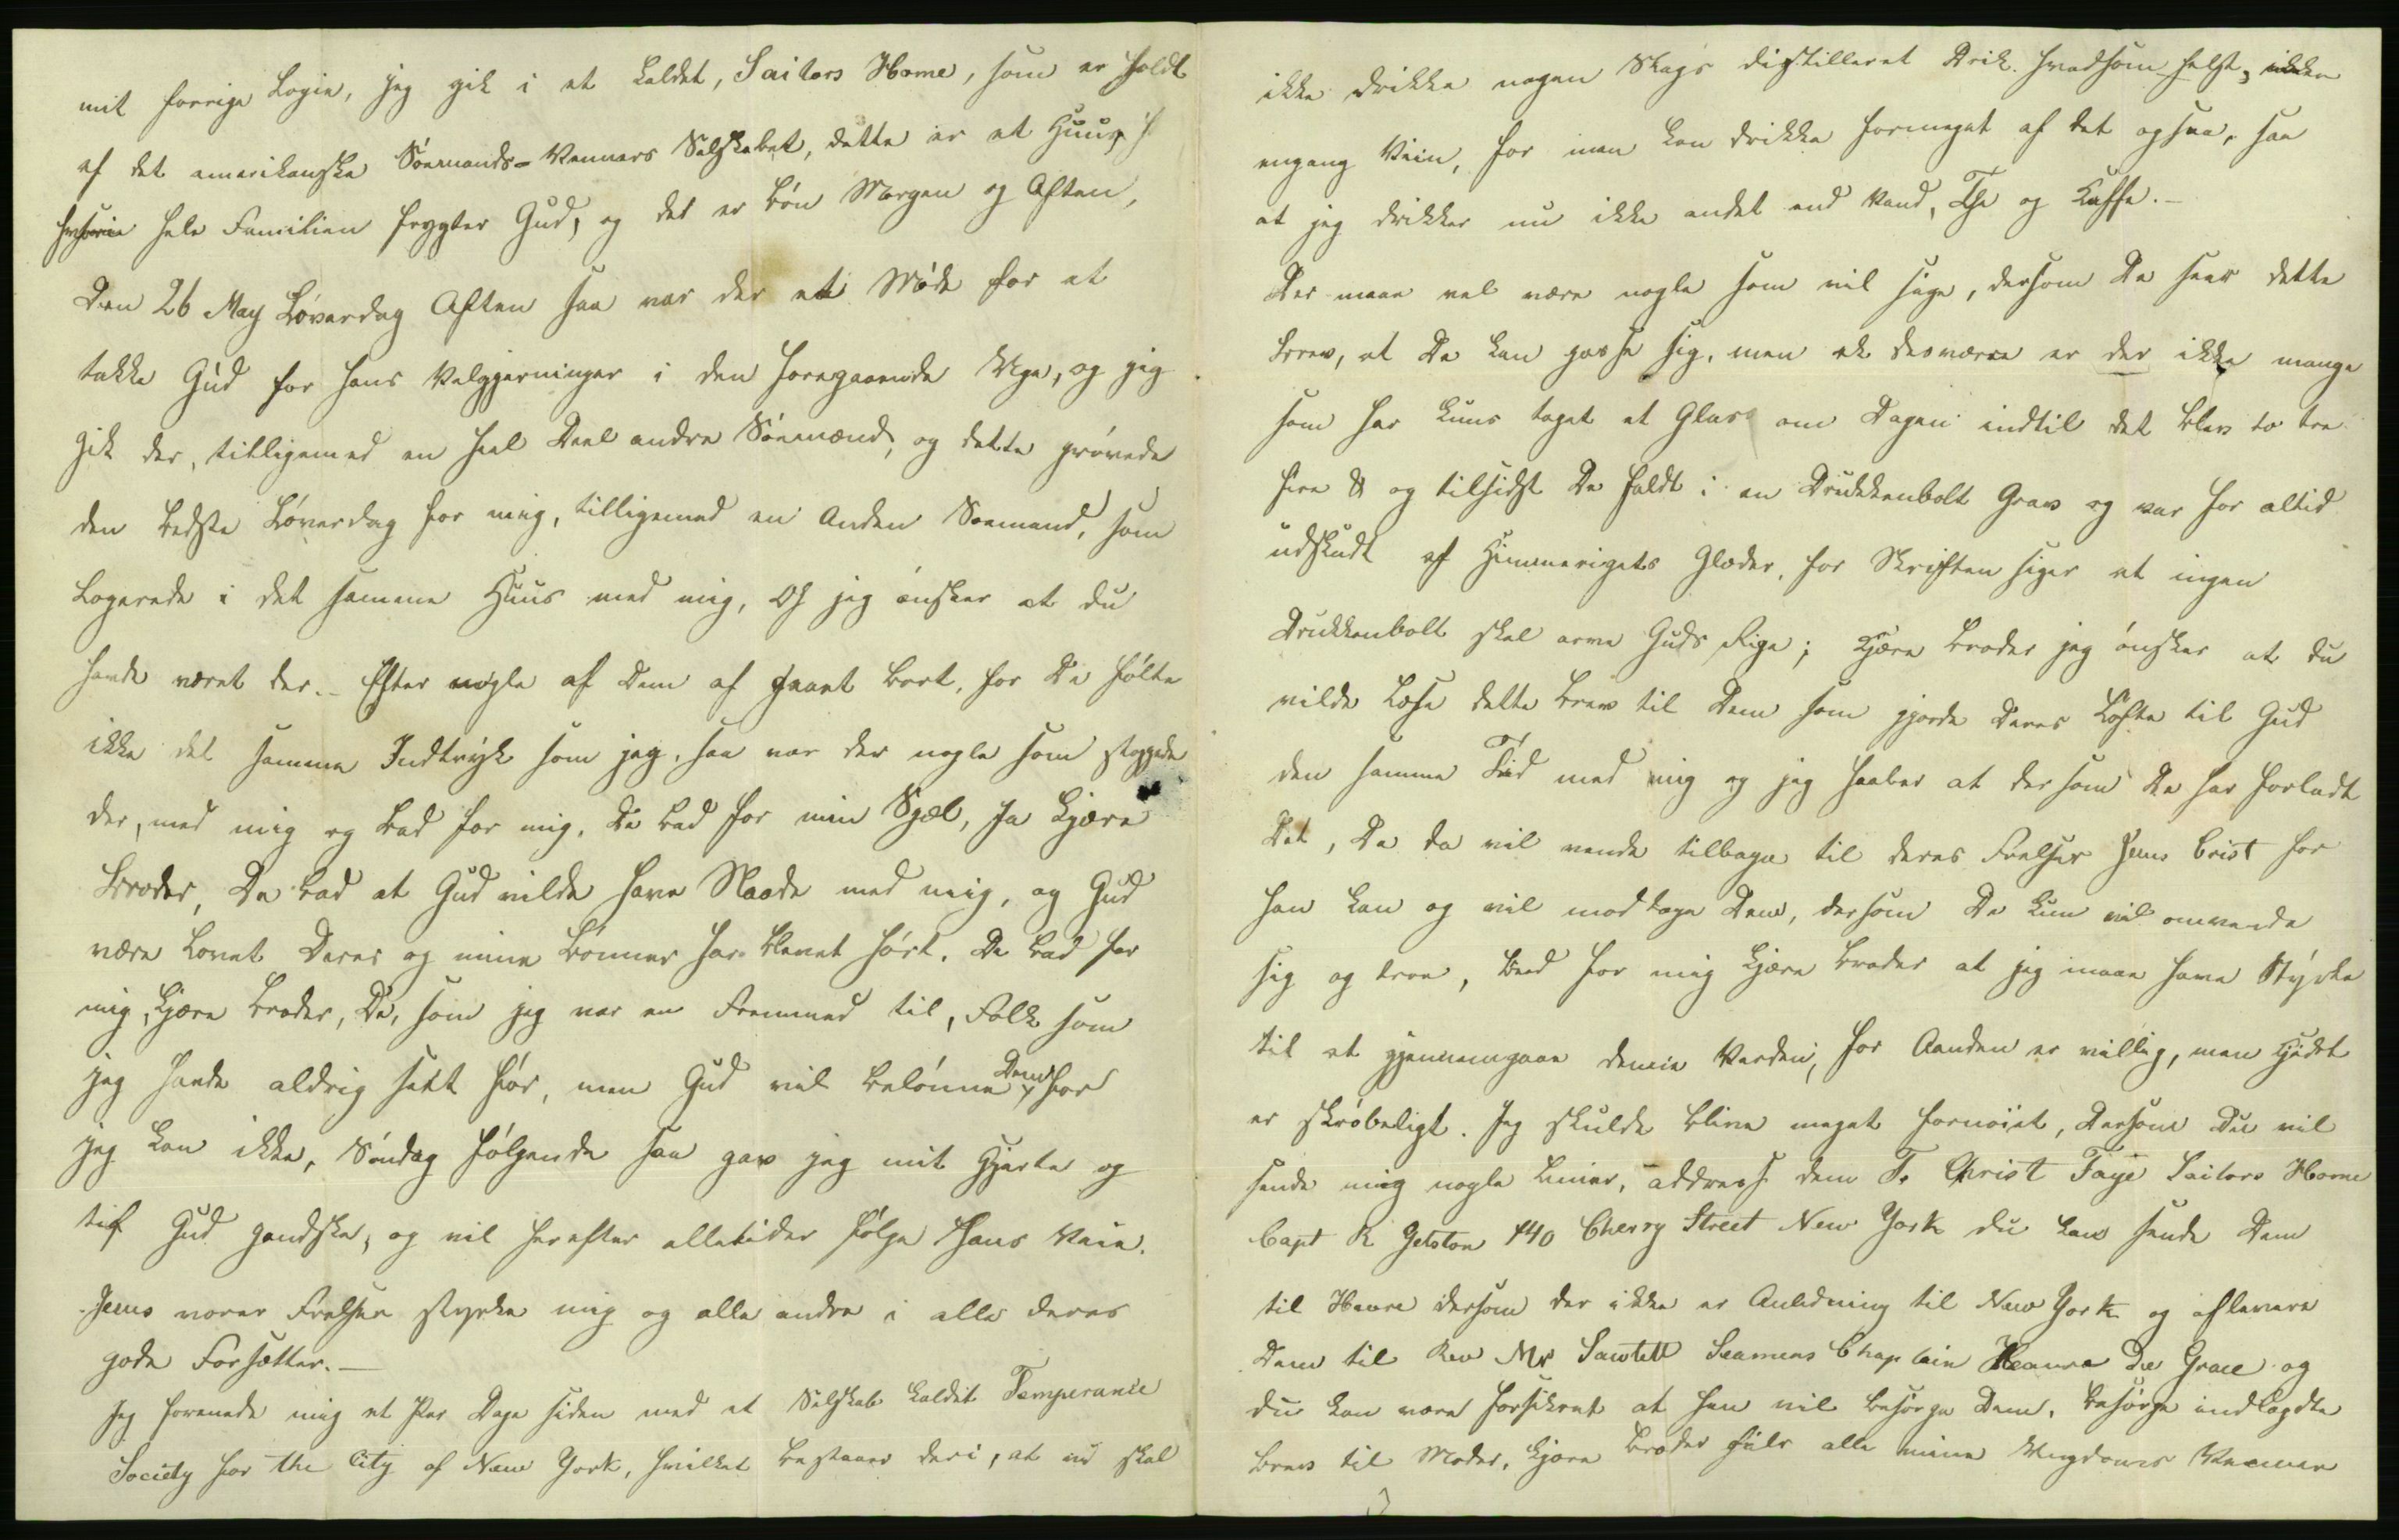 mit forrige Logie, jeg gik i et kaldet, Sailors Home, som er holdt
af det amerikanske Söemands-Venners Selskabet, dette er et Huus,
hvori hele Familien frygter Gud, og det er Bön Morgen og Aften,
Den 26 May Löverdag Aften saa var der et Möde for at
takke Gud for hans Velgjerninger i den foregaaende Uge, og jeg
gik der, tilligemed en heel Deel andre Söemænd, og dette prövede
den bedste Löverdag for mig, tilligemed en Anden Soemand, som
Logerede i det samme Huus med mig, Oh jeg önsker at du
havde været der. – Efter nogle af Dem af gaaet bort, for De fölte
ikke det samme Indtryk som jeg, saa var der nogle som stoppede
der, med mig og bad for mig, De bad for min Sjæl, Ja Kjære
Broder, De bad at Gud vilde have Naade med mig, og Gud
være Lovet Deres og mine Bönner har blevet hört. De bad for
mig, Kjære Broder, De, som jeg var en Fremmed til, Folk som
jeg havde aldrig seet för, men Gud vil belönne Dem for
jeg kan ikke, Söndag fölgende saa gav jeg mit Hjerte og
til Gud gandske, og vil herefter alletider fölge Hans Veie.
Jesus vorer Frelser styrke mig og alle andre i alle deres
gode Forsætter. –
Jeg forenede mig et Par Dage siden med et Selskab kaldet Temperance
Society for the City of New York, hvilket bestaaer deri, at vi skal
ikke drikke nogen Slags distilleret Drik hvadsomhelst, ikke
engang Viin, for man kan drikke formeget af det ogsaa, saa
at jeg drikker nu ikke andet end Vand, The og Kaffe. –
Der maae vel være nogle som vil sige, dersom De seer dette
Brev, at De kan passe sig, men ak desværre er der ikke mange
som har kuns taget et Glas om Dagen indtil det blev to tre
fire & og tilsidst De faldt i en Drukkenbolt Grav og var for altid
udskudt af Himmerigets Glæder, for Skriften siger at ingen
Drukkenbolt skal arve Guds Rige; Kjære Broder jeg önsker at du
vilde Læse dette Brev til Dem som gjorde Deres Löfte til Gud
den samme Tid med mig og jeg haaber at dersom De har forladt
Det, De da vil vende tilbage til deres Frelser Jesus Crist for
han kan og vil modtage Dem, dersom De kun vil omvende
sig og troe, Beed for mig Kjære Broder at jeg maae have Styrke
til at gjennemgaae denne Verden, for Aanden er villig, men Kjödet
er skröbeligt. Jeg skulde blive meget fornöiet, Dersom Du vil
sende mig nogle Linier, addrees dem T. Christ Faye Sailors Home
Capt R Gelston 140 Cherry Street New York du kan sende Dem
til Havre dersom der ikke er Anledning til New York og aflevere
Dem til Rev Mr Sawtell Seamens Chaplain Heavre De Grace og
du kan være forsikret at han vil besörge Dem. besörge indlagdte
Brev til Moder, Kjære Broder hils alle mine Ungdoms Venner